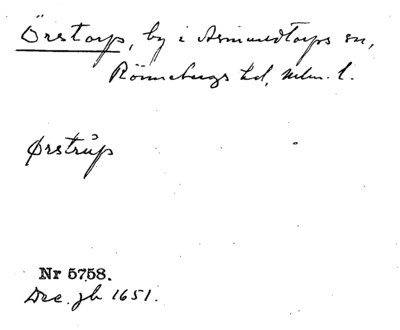 Örstorp, by i Asmundtorps sn,
Rönnebergs hd, Mlm. l.
Ørstrup
Nr 5758.
Dec. jb 1651.